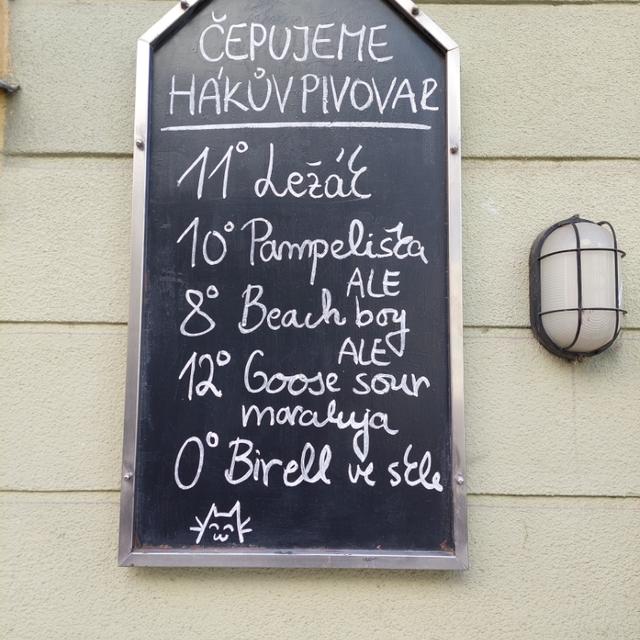 ČEPUJEME
HÁKŮV PIVOVAR
11° Ležák
10° Pampeliška
ALE
8° Beach boy
ALE
12° Goose sour
marakuja
0° Birell ve skle